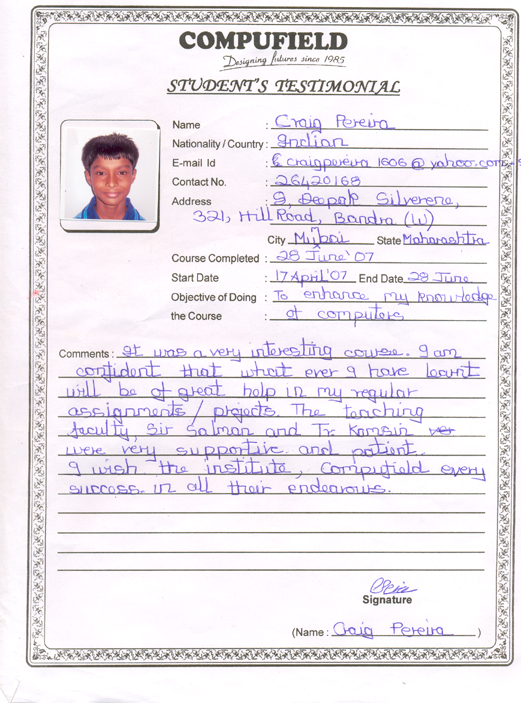 COMPUFIELD
Designing futures since 1985
STUDENT'S TESTIMONIAL
Name : Craig Pereira
Nationality / Country : Indian
E-mail Id : craigpereira 1606@yahoo.com
Contact No. : 26420168
Address : 9, Deepak Silverene,
321, Hill Road, Bandra (W)
City Mumbai State Maharashtra
Course Completed : 28 June '07
Start Date : 17 April '07 End Date 28 June
Objective of Doing : To enhance my knowledge
the Course of computers
Comments : It was a very interesting course. I am
confident that what ever I have learnt
will be of great help in my regular
assignments / projects. The teaching
faculty, Sir Salman and Tr. Komsin
were very supportive and patient.
I wish the institute, Compufield every
success in all their endeavours.
Signature
(Name : Craig Pereira )